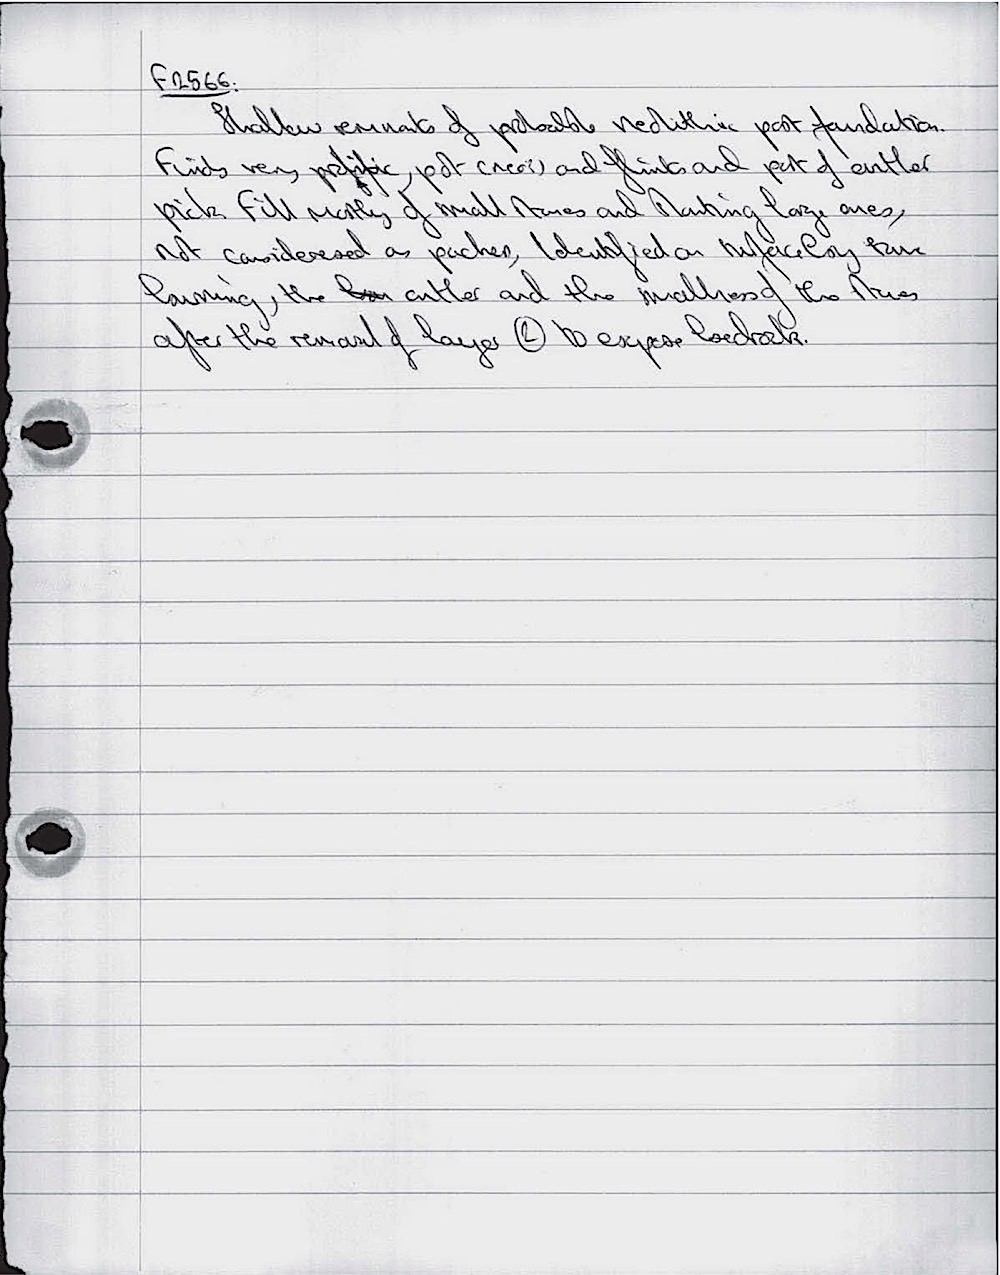 F2566.
Shallow remnants of probable neolithic post foundation.
Finds very prolific, pot (neo:) and flints and part of antler
pick. Fill mostly of small stones and lacking large ones,
not considered as packers, Identified on surface by some
burning, the antler and the smallness of the stones
after the removal of layer (L) to expose bedrock.